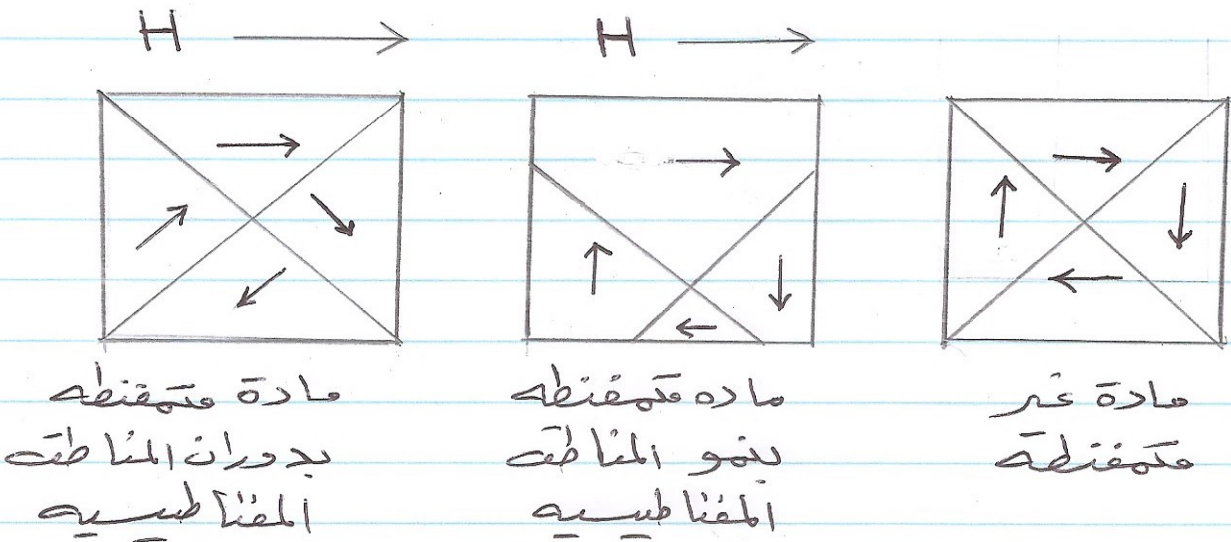 H
H
مادة غير
متمغنطة
ماده متمغنطه
بنمو المناطق
المغناطيسيه
مادة متمغنطه
بدوران المناطق
المغناطيسيه